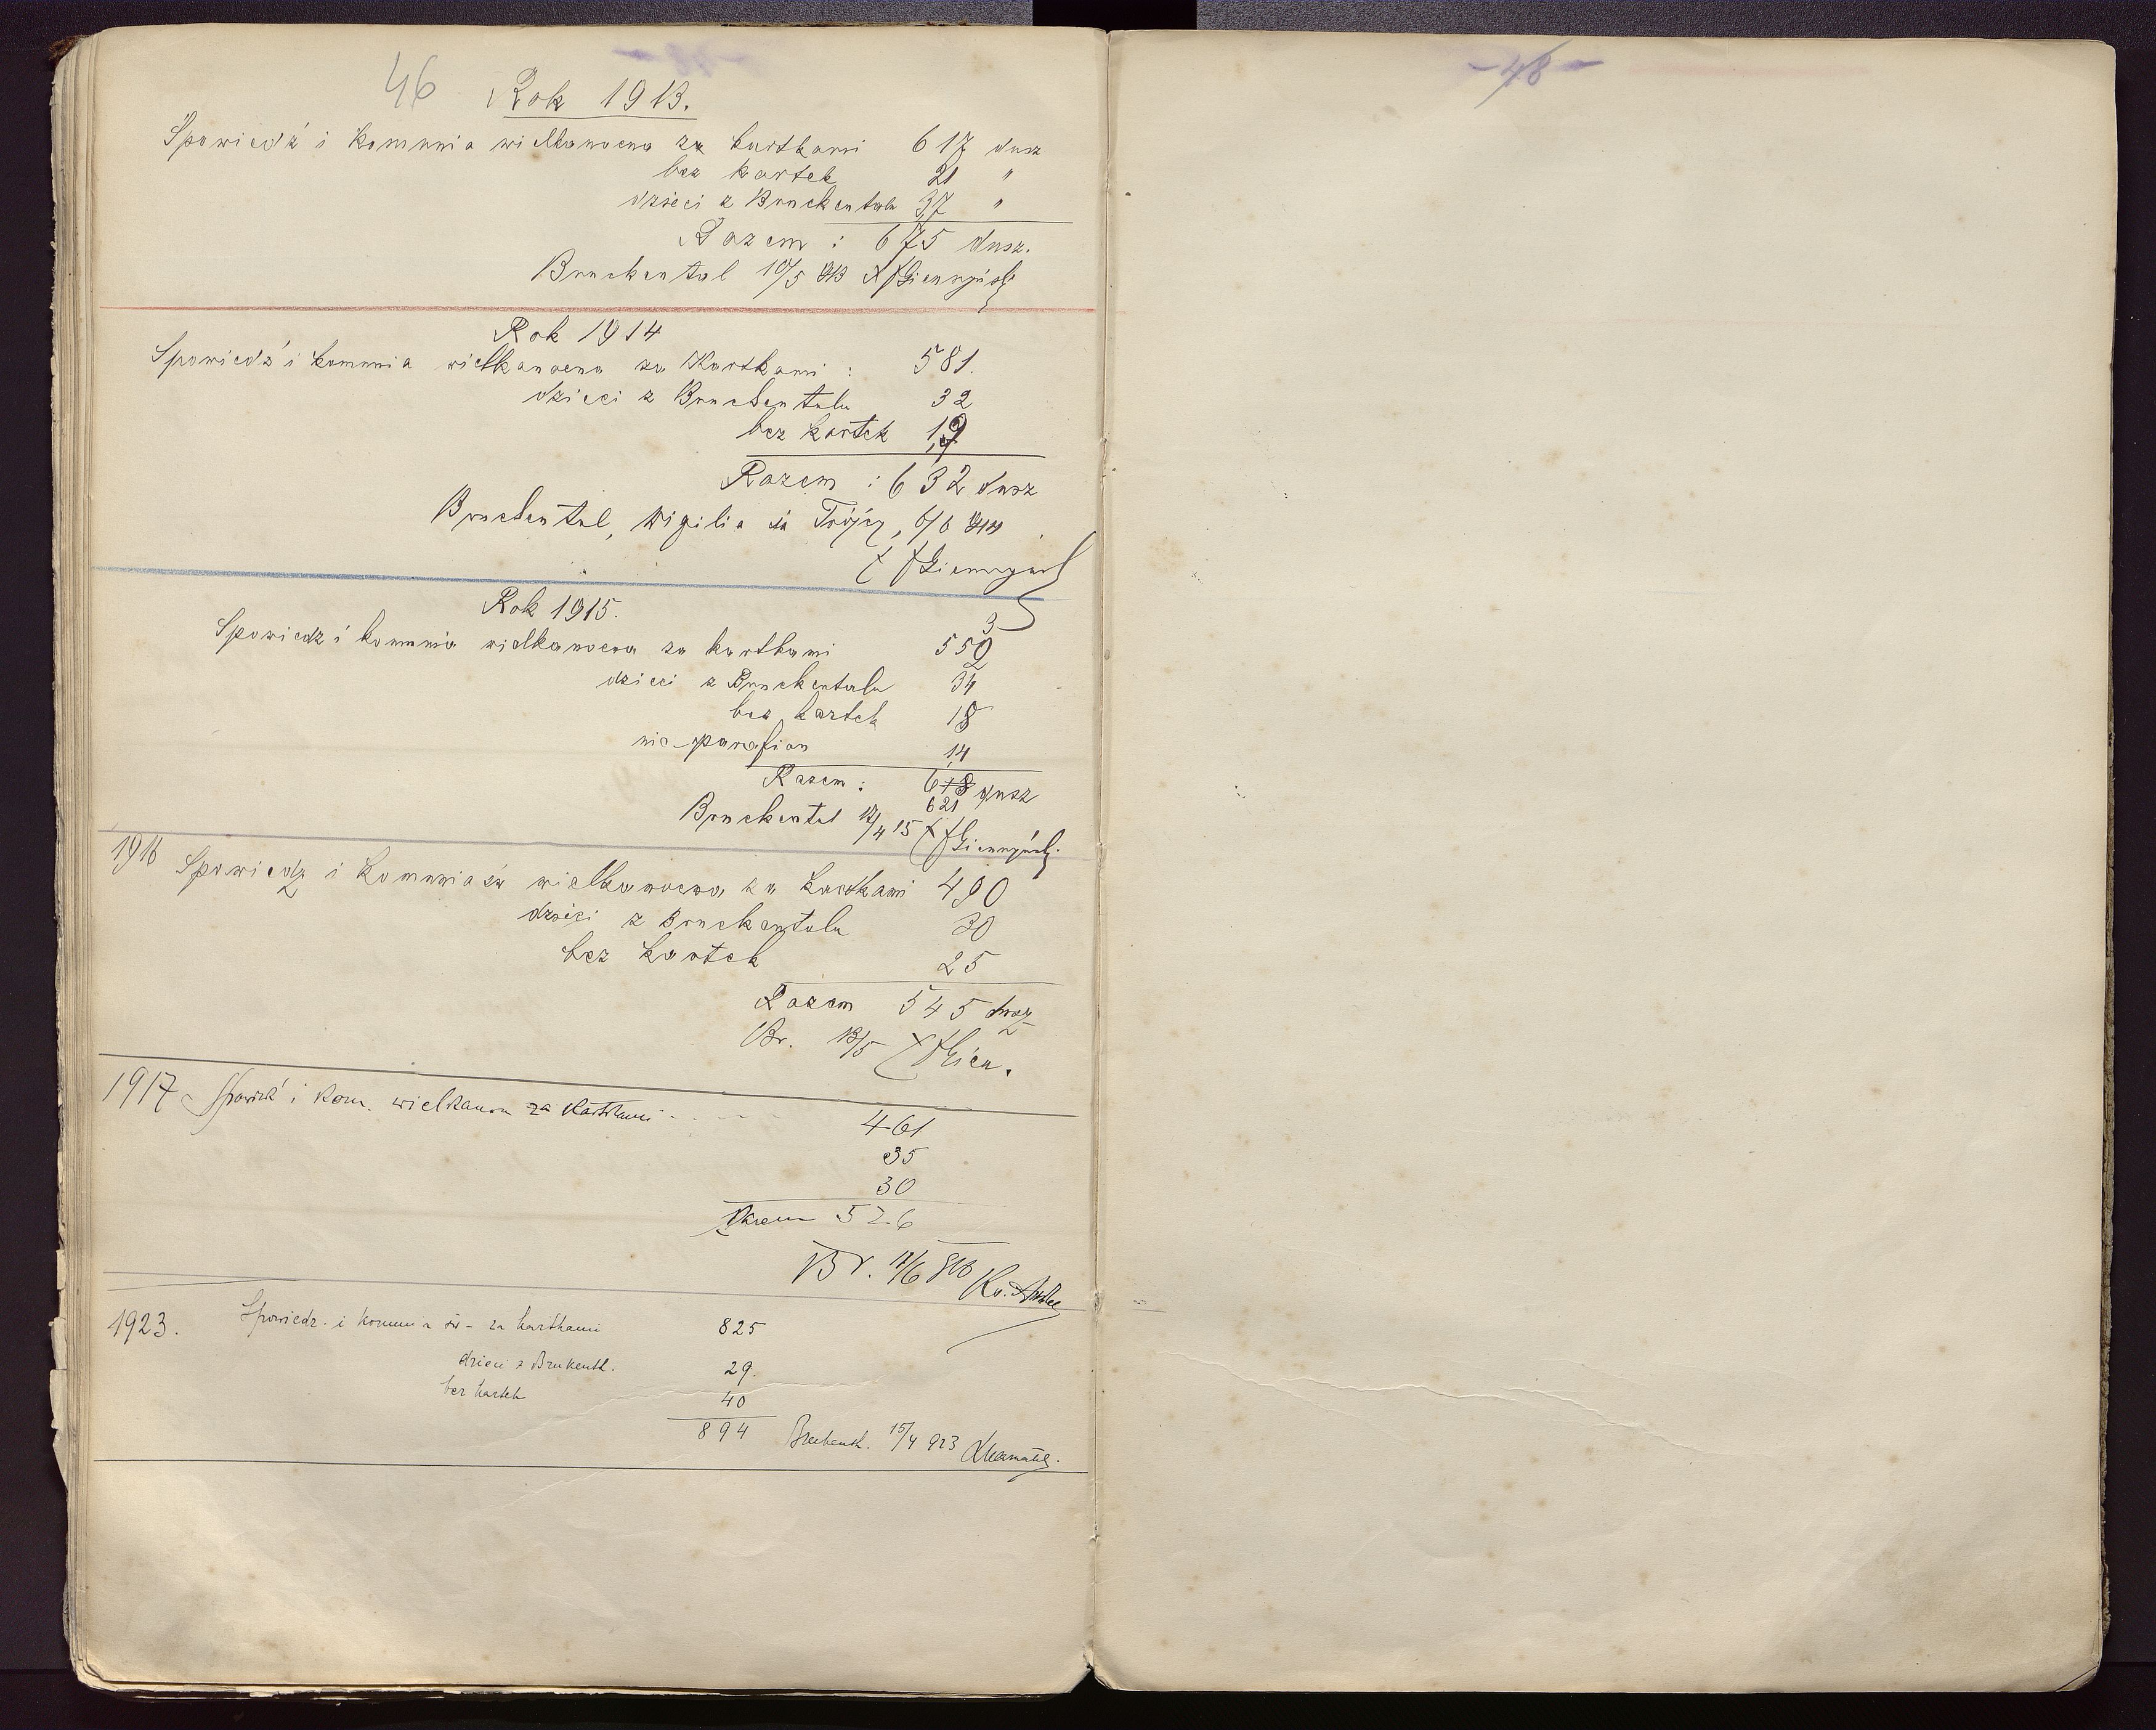 46 Rok 1913.
Spowiedź i komunia wielkanocna za kartkami 617 dusz
bez kartek 21 "
dzieci z Bruckentalu 37 "
Razem : 675 dusz.
Bruckental 10/5 913 X
Rok 1914
Spowiedź i komunia wielkanocna za Kartkami : 581.
dzieci z Bruckentalu 32
bez kartek 19
Razem : 632 dusz
Bruckental, Wigilia św Trójcy, 6/6 914
Rok 1915.
Spowiedz i komunia wielkanocna za kartkami 552
3
dzieci z Bruckentalu 34
bez kartek 18
nie-parafian 14
Razem : 618 dusz
621
Bruckental 17/4 15 X
1916 Spowiedz i Komunia św wielkanocna za kartkami 490
dzieci z Bruckentalu 30
bez kartek 25
Razem 545 dusz
Br. 13/5 X
1917 Spowiedź i kom. wielkanocn za kartkami - - - -
461
35
30
Razem 526
Br. 17/6
1923. Spowiedz. i komunia św - za kartkami 825
dzieci z Brukentl. 29.
bez kartek 40
894 15/4 923
- 48 -